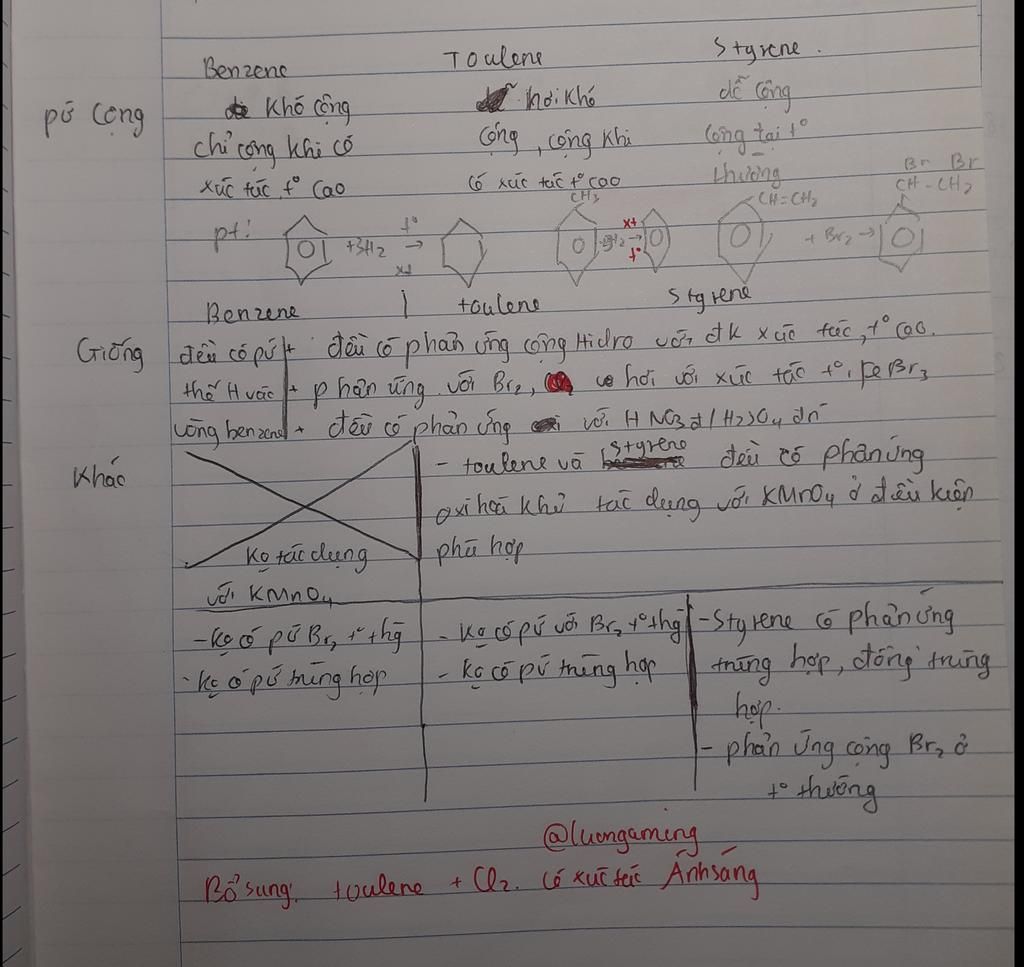 Benzene Toulene Styrene.
pứ Cộng Khó cộng hơi Khó dễ cộng
chỉ cộng khi có cộng, cộng khi cộng tại t°
xúc tác t° cao có xúc tác t° cao thường
pt: +3H₂ t° xt CH₃ +3H₂ xt t° CH=CH₂ + Br₂ → Br Br CH-CH₂
Benzene toulene Styrene
Giống đều có pứ + đều có phản ứng cộng Hidro với đk xúc tác, t° cao.
thế H vào + phản ứng với Br₂, hơi với xúc tác t°, FeBr₃
vòng benzene + đều có phản ứng với HNO₃đ/H₂SO₄ đn
Khác - toulene và styrene đều có phản ứng
oxi hoá khử tác dụng với KMnO₄ ở điều kiện
Ko tác dụng phù hợp
với KMnO₄
- Ko có pứ Br₂ t° thg - Ko có pứ với Br₂ t° thg - Styrene có phản ứng
- Ko có pứ trùng hợp - Ko có pứ trùng hợp trùng hợp, đồng trùng
hợp.
- phản ứng cộng Br₂ ở
t° thường
@luongaming
Bổ sung: toulene + Cl₂. có xúc tác Ánh sáng